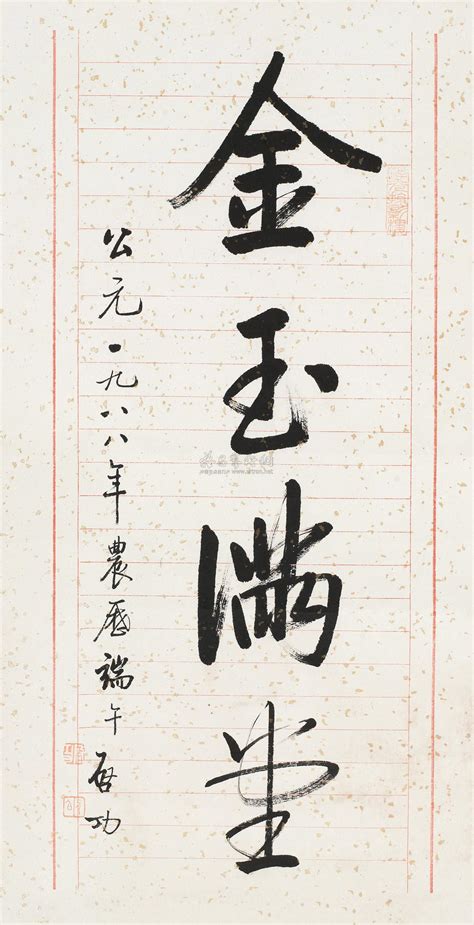 金玉满堂
公元一九八八年農曆端午啓功